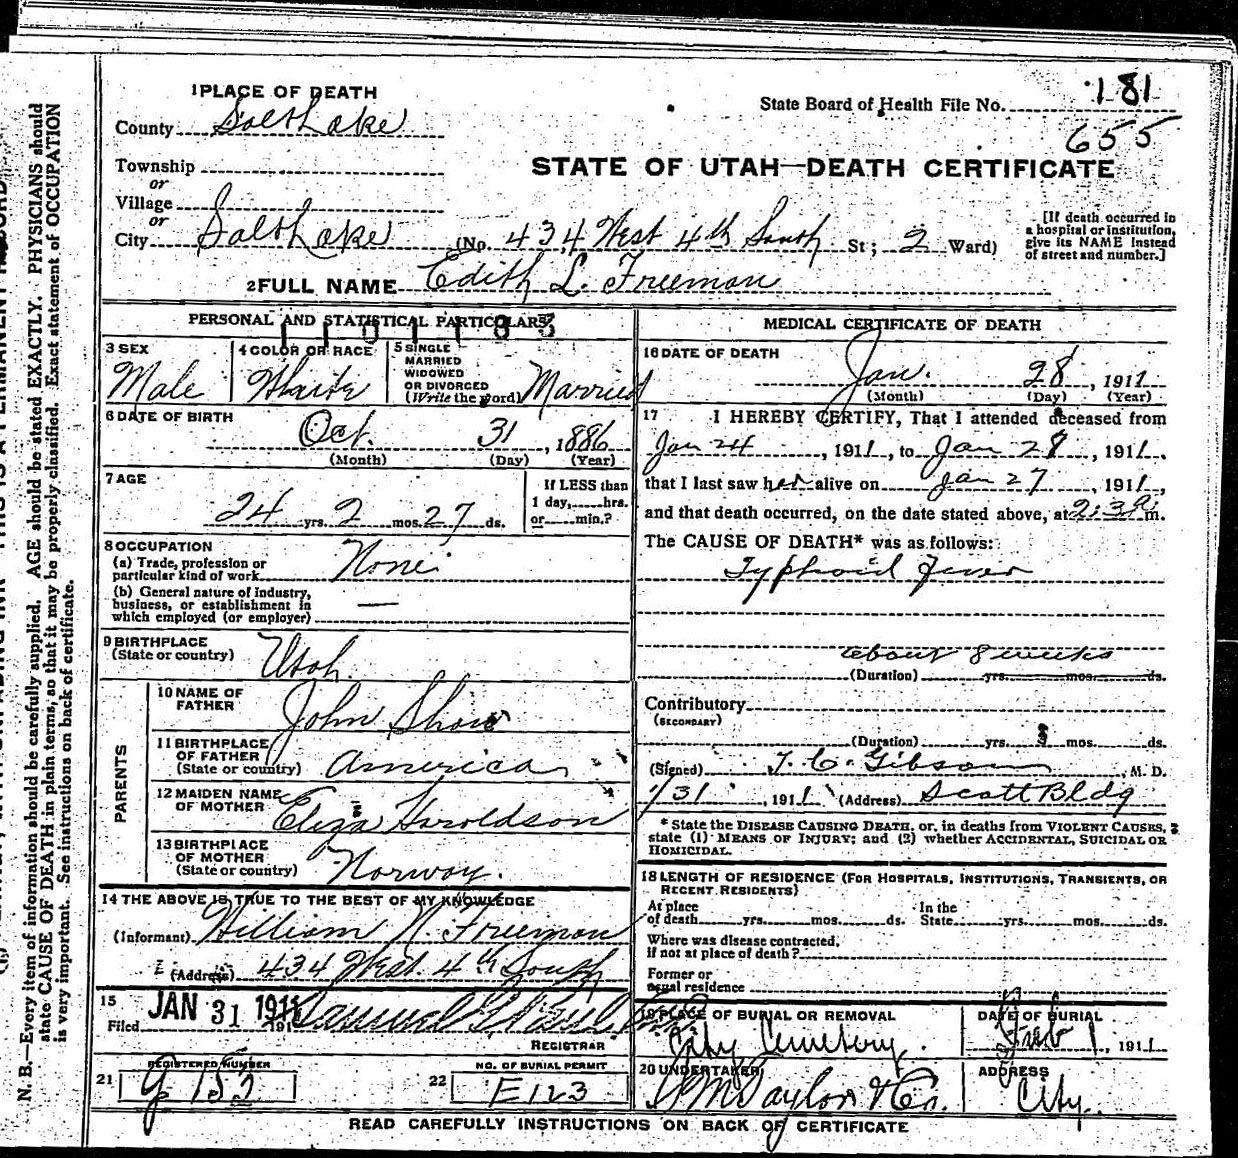 1 PLACE OF DEATH
State Board of Health File No. 181
County Salt Lake
655
Township
or
STATE OF UTAH—DEATH CERTIFICATE
Village
or
City Salt Lake (No. 434 West 4th South St; 2 Ward)
[If death occurred in
a hospital or institution,
give its NAME instead
of street and number.]
2 FULL NAME Edith L. Freeman
PERSONAL AND STATISTICAL PARTICULARS
3 SEX
Male
4 COLOR OR RACE
White
5 SINGLE
MARRIED
WIDOWED
OR DIVORCED
(Write the word) Married
6 DATE OF BIRTH
Oct. 31, 1886
(Month) (Day) (Year)
7 AGE
24 yrs. 2 mos. 27 ds.
If LESS than
1 day, hrs.
or min.?
8 OCCUPATION
(a) Trade, profession or
particular kind of work None
(b) General nature of industry,
business, or establishment in —
which employed (or employer)
9 BIRTHPLACE
(State or country) Utah
PARENTS
10 NAME OF
FATHER John Show
11 BIRTHPLACE
OF FATHER
(State or country) America
12 MAIDEN NAME
OF MOTHER Eliza Haroldson
13 BIRTHPLACE
OF MOTHER
(State or country) Norway.
14 THE ABOVE IS TRUE TO THE BEST OF MY KNOWLEDGE
(Informant) William N. Freeman
(Address) 434 West. 4th South
15
Filed JAN 31 1911
REGISTRAR
21 REGISTERED NUMBER
g 152
22 NO. OF BURIAL PERMIT
E123
MEDICAL CERTIFICATE OF DEATH
16 DATE OF DEATH
Jan. 28, 1911
(Month) (Day) (Year)
17 I HEREBY CERTIFY, That I attended deceased from
Jan 24, 1911, to Jan 28, 1911.
that I last saw her alive on Jan 27, 1911,
and that death occurred, on the date stated above, at m.
The CAUSE OF DEATH* was as follows:
Typhoid Fever
about 8 weeks
(Duration) yrs. mos. ds.
Contributory
(SECONDARY)
(Duration) yrs. mos. ds.
(Signed) T. C. Gibson, M. D.
1/31, 1911 (Address) Scott Bldg
* State the DISEASE CAUSING DEATH, or, in deaths from VIOLENT CAUSES,
state (1) MEANS OF INJURY; and (2) whether ACCIDENTAL, SUICIDAL OR
HOMICIDAL.
18 LENGTH OF RESIDENCE (FOR HOSPITALS, INSTITUTIONS, TRANSIENTS, OR
RECENT RESIDENTS)
At place In the
of death yrs. mos. ds. State yrs. mos. ds.
Where was disease contracted,
if not at place of death?
Former or
usual residence
19 PLACE OF BURIAL OR REMOVAL
City Cemetery.
DATE OF BURIAL
Feb 1, 1911
20 UNDERTAKER
S M Taylor & Co.
ADDRESS
City.
READ CAREFULLY INSTRUCTIONS ON BACK OF CERTIFICATE
N. B.—Every item of information should be carefully supplied. AGE should be stated EXACTLY. PHYSICIANS should
state CAUSE OF DEATH in plain terms, so that it may be properly classified. Exact statement of OCCUPATION
is very important. See instructions on back of certificate.